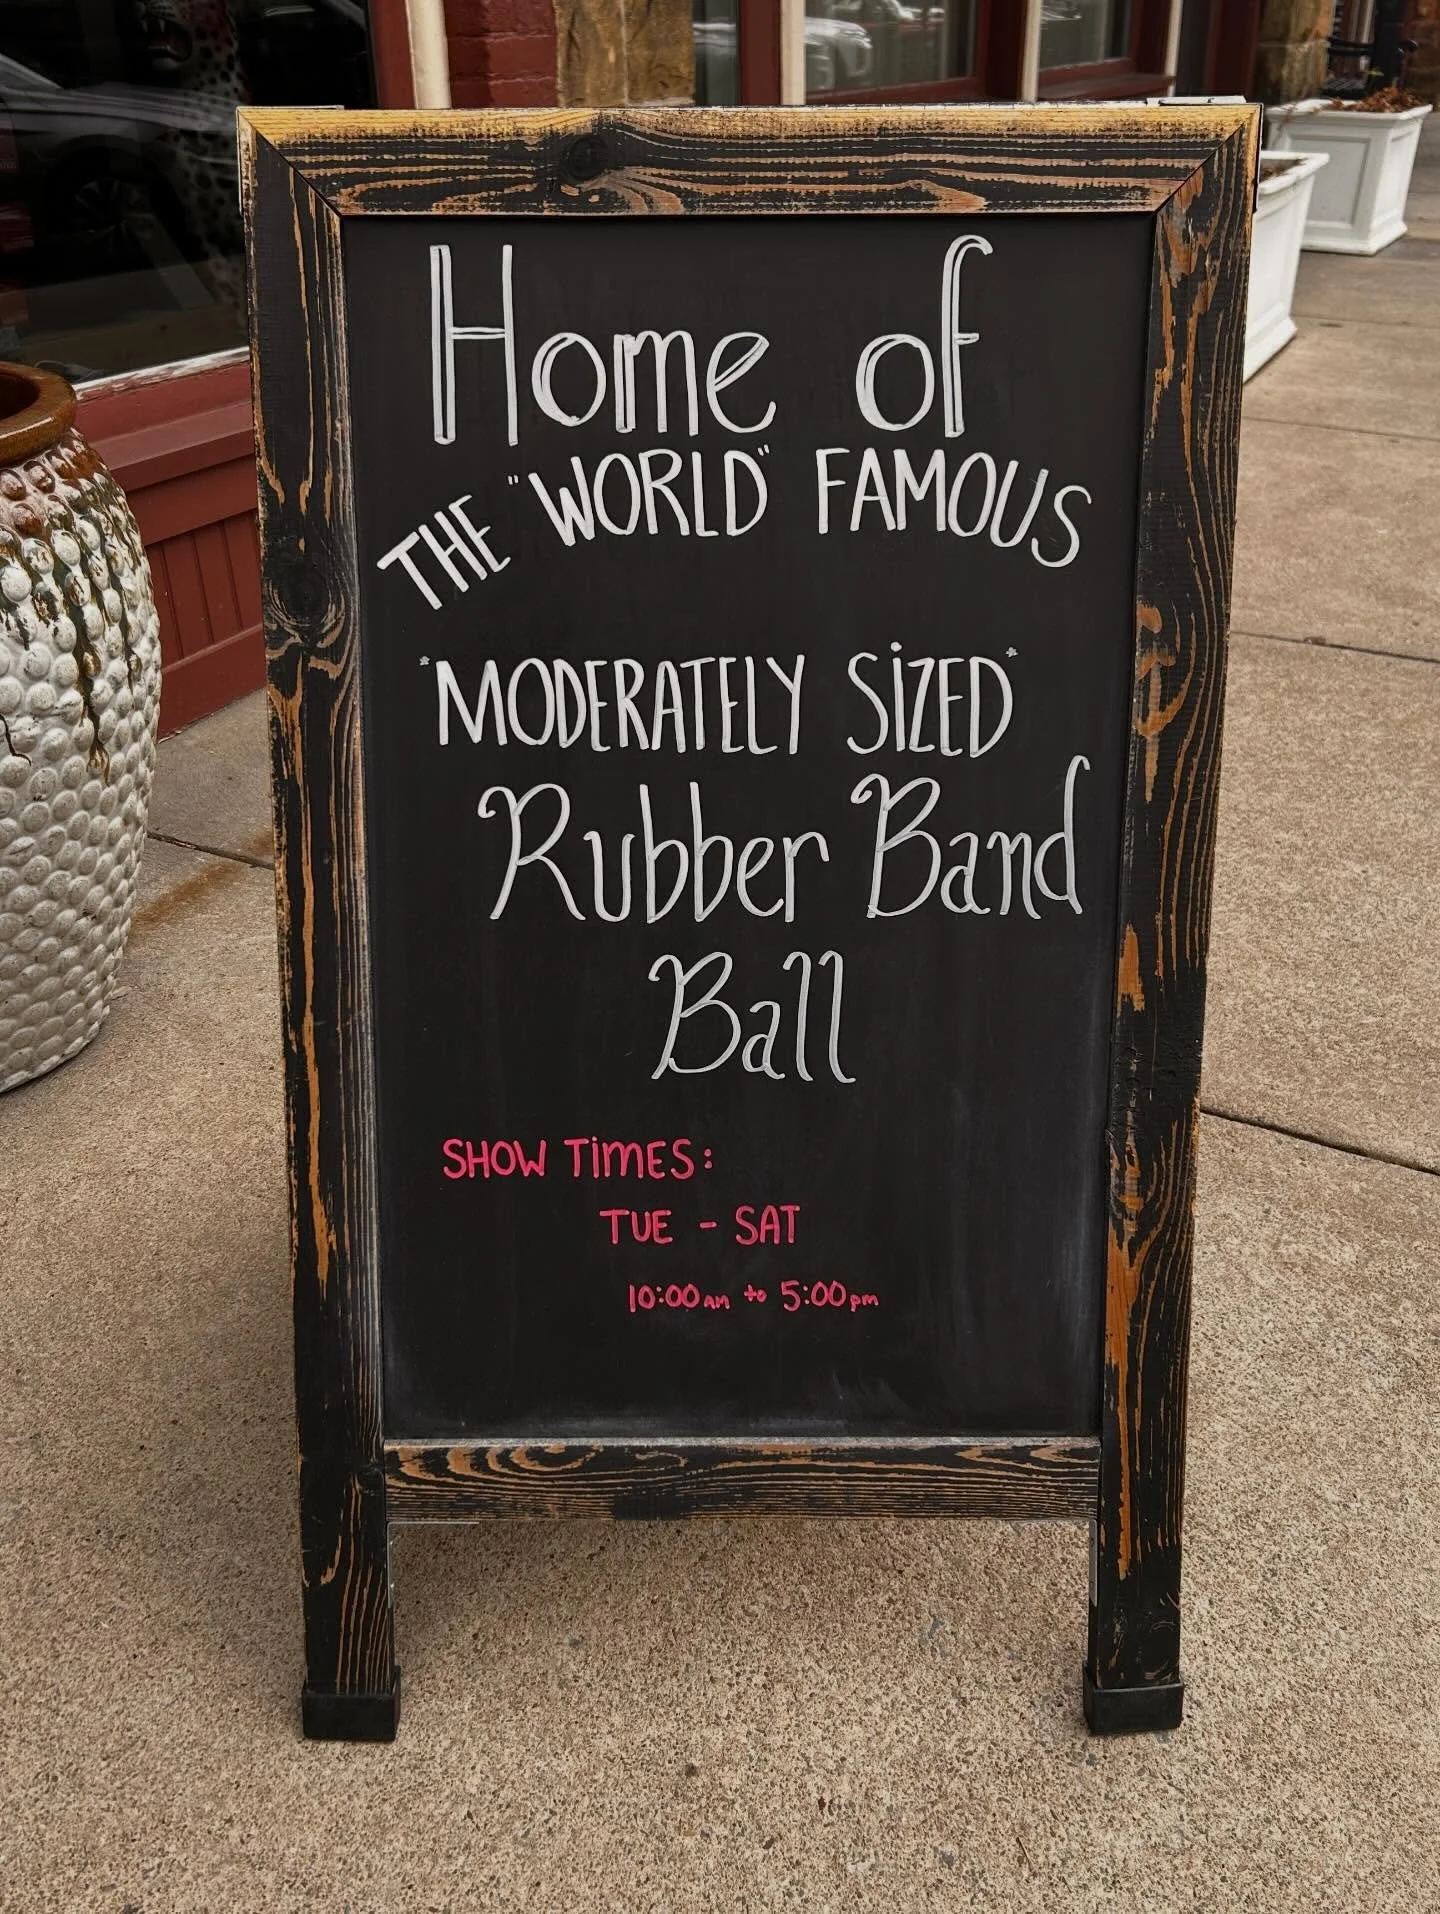 Home of
THE "WORLD" FAMOUS
*MODERATELY SiZED*
Rubber Band
Ball
SHOW TiMES:
TUE - SAT
10:00am to 5:00pm